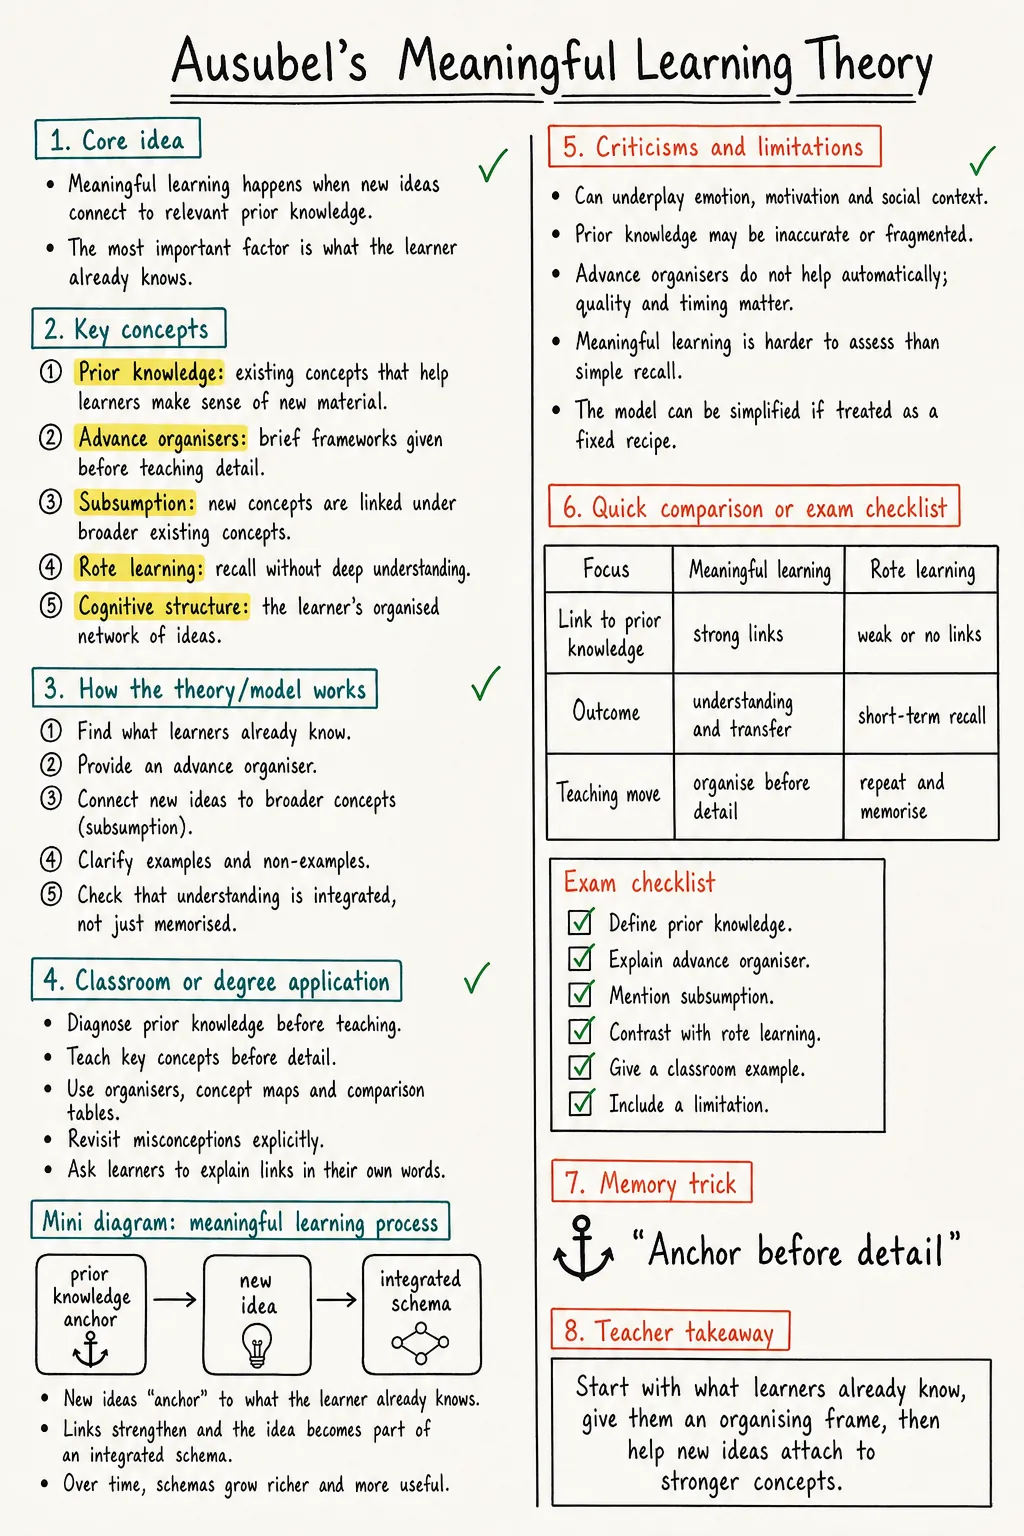 Ausubel's Meaningful Learning Theory
1. Core idea
• Meaningful learning happens when new ideas
connect to relevant prior knowledge.
• The most important factor is what the learner
already knows.
2. Key concepts
① Prior knowledge: existing concepts that help
learners make sense of new material.
② Advance organisers: brief frameworks given
before teaching detail.
③ Subsumption: new concepts are linked under
broader existing concepts.
④ Rote learning: recall without deep understanding.
⑤ Cognitive structure: the learner's organised
network of ideas.
3. How the theory/model works
① Find what learners already know.
② Provide an advance organiser.
③ Connect new ideas to broader concepts
(subsumption).
④ Clarify examples and non-examples.
⑤ Check that understanding is integrated,
not just memorised.
4. Classroom or degree application
• Diagnose prior knowledge before teaching.
• Teach key concepts before detail.
• Use organisers, concept maps and comparison
tables.
• Revisit misconceptions explicitly.
• Ask learners to explain links in their own words.
Mini diagram: meaningful learning process
prior
knowledge
anchor
new
idea
integrated
schema
• New ideas "anchor" to what the learner already knows.
• Links strengthen and the idea becomes part of
an integrated schema.
• Over time, schemas grow richer and more useful.
5. Criticisms and limitations
• Can underplay emotion, motivation and social context.
• Prior knowledge may be inaccurate or fragmented.
• Advance organisers do not help automatically;
quality and timing matter.
• Meaningful learning is harder to assess than
simple recall.
• The model can be simplified if treated as a
fixed recipe.
6. Quick comparison or exam checklist
Focus Meaningful learning Rote learning
Link to prior
knowledge
strong links
weak or no links
Outcome
understanding
and transfer
short-term recall
Teaching move
organise before
detail
repeat and
memorise
Exam checklist
Define prior knowledge.
Explain advance organiser.
Mention subsumption.
Contrast with rote learning.
Give a classroom example.
Include a limitation.
7. Memory trick
"Anchor before detail"
8. Teacher takeaway
Start with what learners already know,
give them an organising frame, then
help new ideas attach to
stronger concepts.